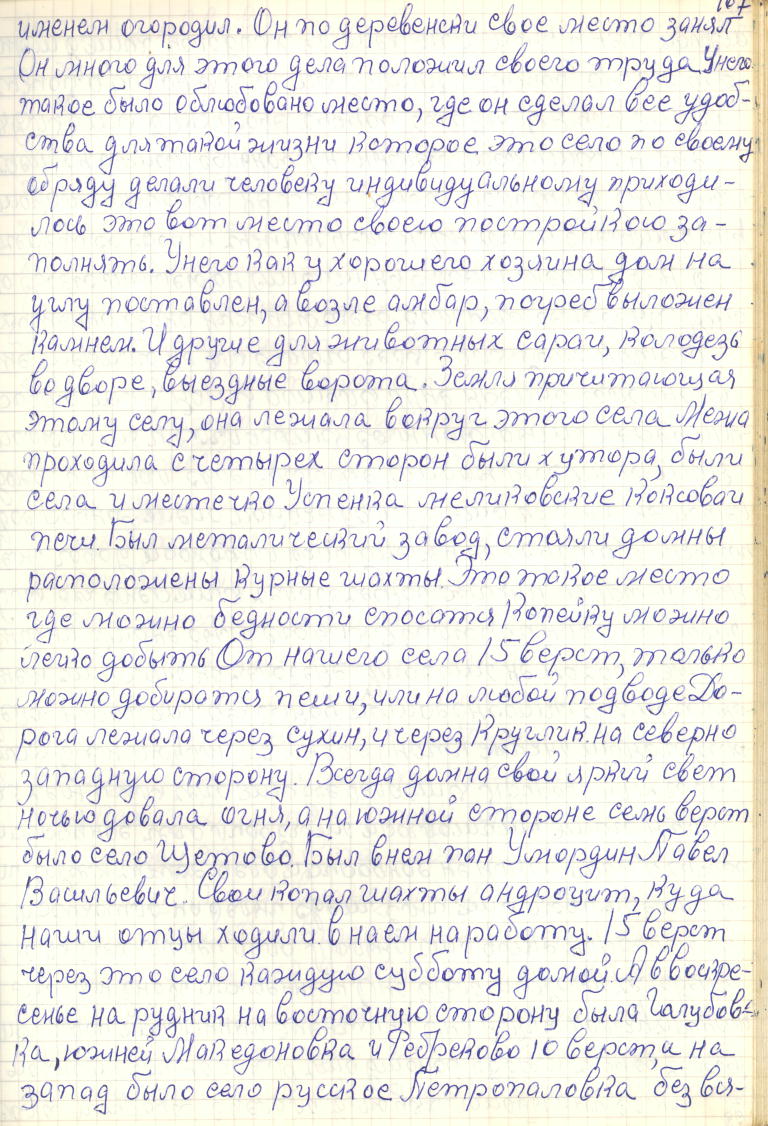 107
именем огородил. Он по деревенски свое место занял
Он много для этого дела положил своего труда Унего
такое было облюбовано место, где он сделал все удоб-
ства для такой жизни которое это село по своему
обряду делали человеку индивидуальному приходи-
лось это вот место своею постройкою за-
полнять. Унего как у хорошего хозяина дом на
углу поставлен, а возле амбар, погреб выложен
камнем. И другие для животных сараи, колодезь
во дворе, выездные ворота. Земля причитающая
этому селу, она лежала вокруг этого села Межа
проходила с четырех сторон были хутора, были
села и местечко Успенка меликовские коксоваи
печи. Был металический завод, стояли домны
расположены курные шахты. Это такое место
где можно бедности спосатся Копейку можно
легко добыть От нашего села 15 верст, только
можно добиратся пеши, или на любой подводе До-
рога лежала через сухин, и через Круглик на северно
западную сторону. Всегда домна свой яркий свет
ночью довала огня, а на южной стороне семь верст
было село Щетово. Был в нем пан Умордин Павел
Васильевич. Свои копал шахты андроцит, куда
наши отцы ходили в наем на работу. 15 верст
через это село каждую субботу домой. А в воскре-
сенье на рудник на восточную сторону была Галубов-
ка, южней Македоновка и Ребреково 10 верст, а на
запад было село русское Петропаловка без вся-